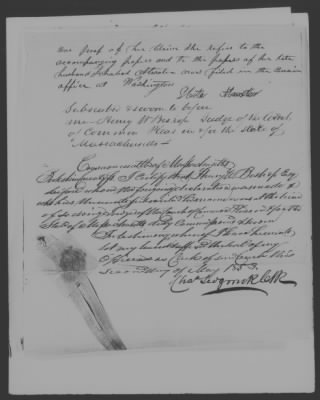 has proof of her claim she refers to the
accompanying papers and to the papers of her late
husband Ichabod now filed in the Pension
office at Washington
Subscribed & sworn to before
me Henry W Bishop Judge of the Court
of Common Pleas in & for the State of
Massachusetts
Commonwealth of Massachusetts
Berkshire I Certify that Henry W Bishop Esq
before whom the foregoing declaration was made &
who has thereunto his name was at the time
of so doing Judge of the Court of Common Pleas for the
State of Massachusetts duly Commissioned & sworn
In testimony whereof I have hereunto
set my hand and the seal of my
Office as Clerk of said Court this
second day of May 1853.
Chas Sedgwick Clk